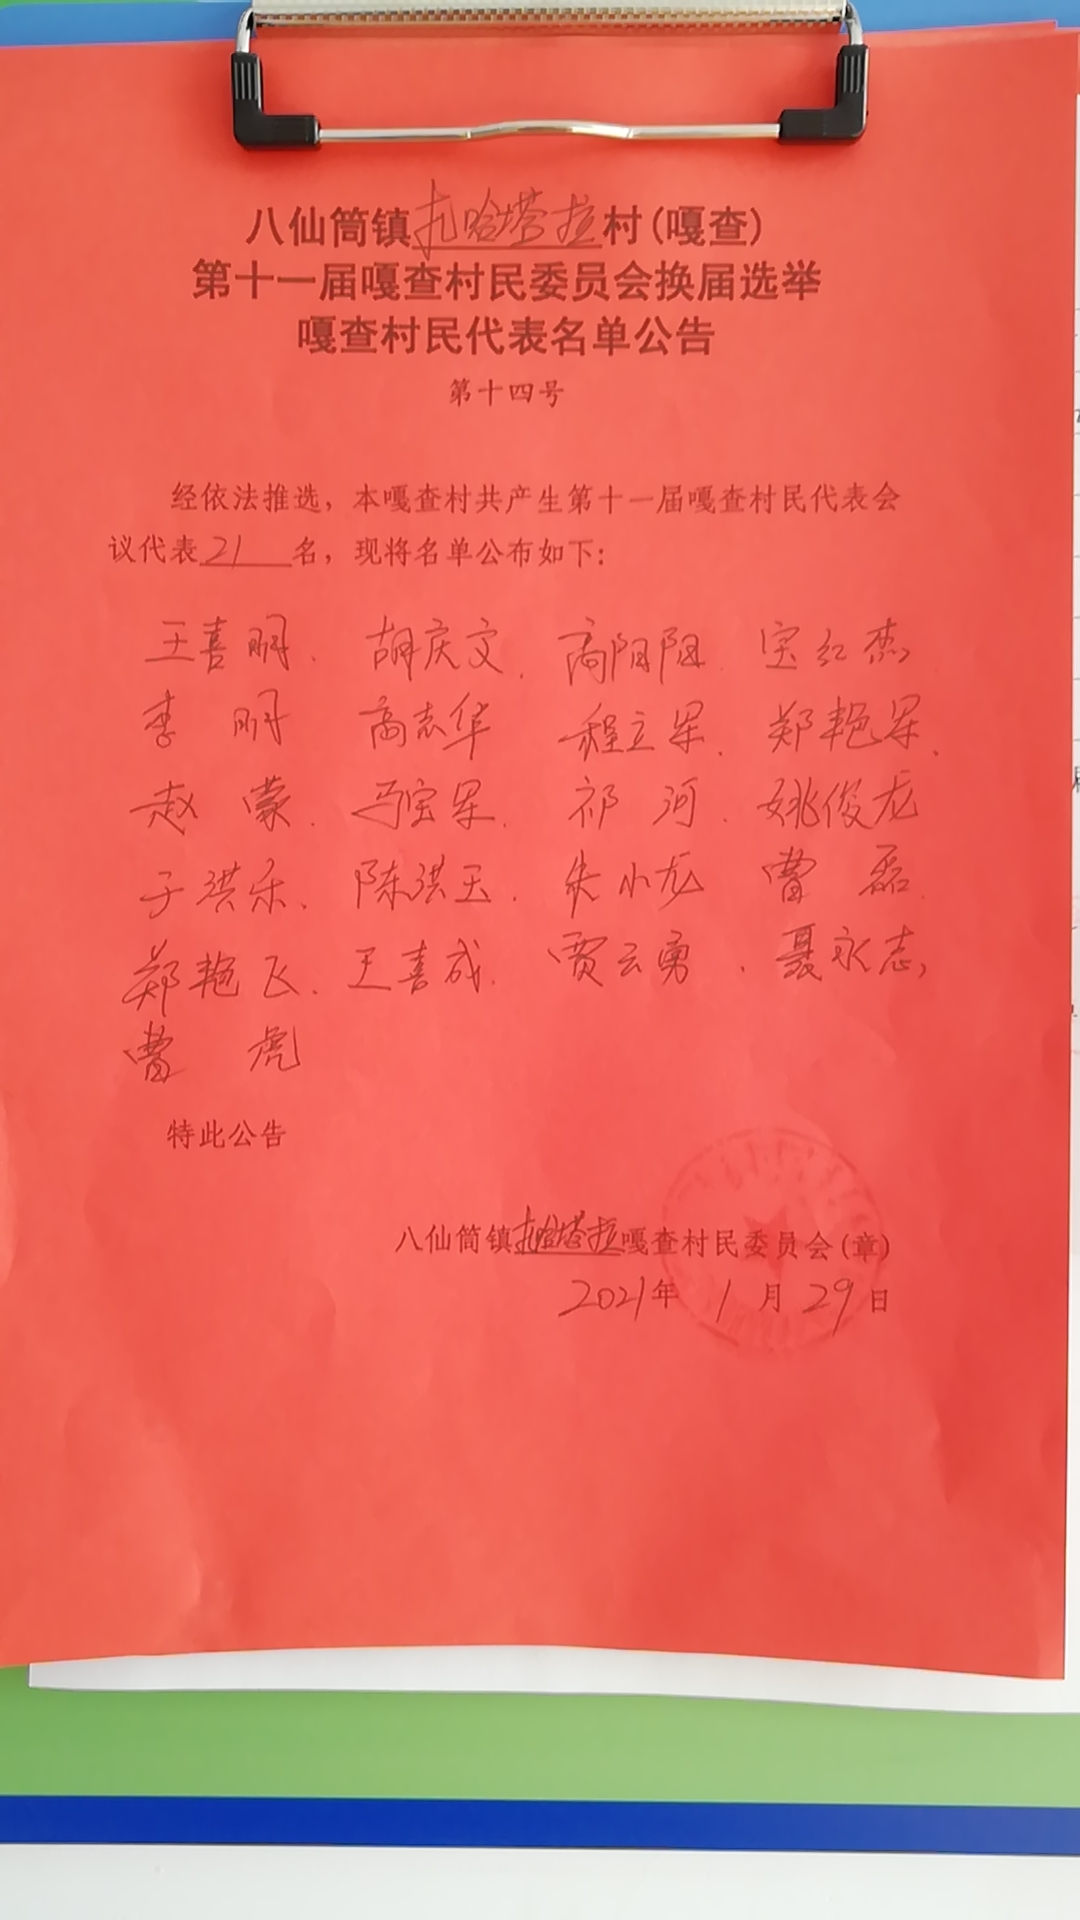 八仙筒镇扎哈塔拉村(嘎查)
第十一届嘎查村民委员会换届选举
嘎查村民代表名单公告
第十四号
经依法推选，本嘎查村共产生第十一届嘎查村民代表会
议代表21名，现将名单公布如下：
王喜明、胡庆文、高阳阳、宝红杰
李明 高志华 程立军、郑艳军、
赵蒙、马宝军、祁河、姚俊龙
于洪乐、陈洪玉、朱小龙 曹磊
郑艳飞、王喜成、贾云勇、聂永志，
曹虎
特此公告
八仙筒镇扎哈塔拉嘎查村民委员会(章)
2021年1月29日